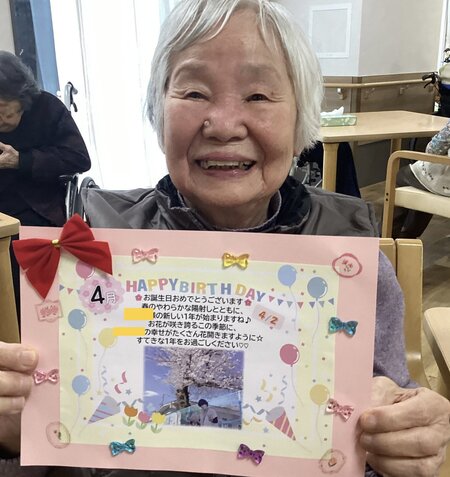 HAPPY BIRTHDAY
4月
お誕生日おめでとうございます
4/2
春のやわらかな陽射しとともに、
の新しい1年が始まりますね♪
お花が咲き誇るこの季節に、
の幸せがたくさん花開きますように☆
すてきな1年をお過ごしください♡♡